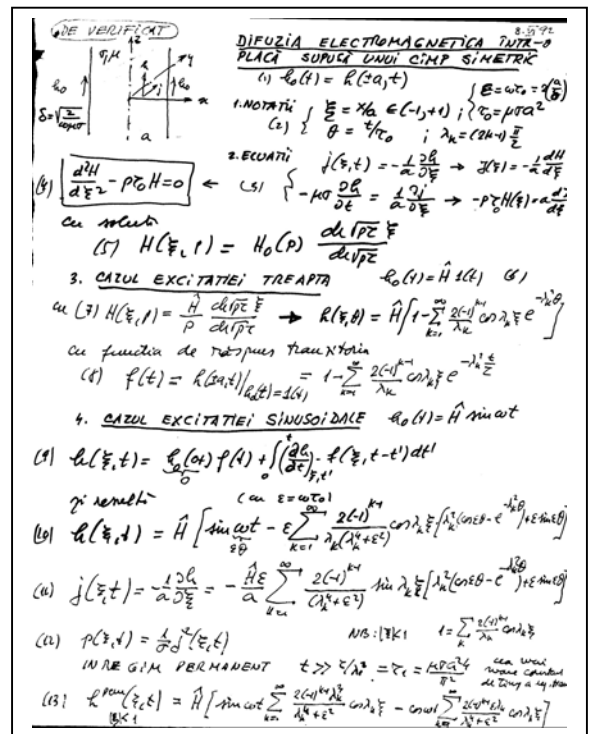 DE VERIFICAT
8-XI-92
DIFUZIA ELECTROMAGNETICA ÎNTR-O
PLACĂ SUPUSĂ UNUI CÎMP SIMETRIC
σ, μ
z
y
h₀
h
j
h₀
x
a
δ=√(2/ωμσ)
(1) h₀(t) = h(±a,t)
1. NOTATII
(2) { ξ = x/a ∈ (-1,+1) ; { ε = ωτ₀ = 2(a/δ)²
θ = t/τ₀ ; τ₀ = μσa²
λₖ = (2k-1) π/2
2. ECUATII
(3) { j(ξ,t) = -1/a ∂h/∂ξ → J(ξ) = -1/a dH/dξ
-μσ ∂h/∂t = 1/a ∂j/∂ξ → -pτ₀H(ξ) = a dJ/dξ
(4) d²H/dξ² - pτ₀H = 0 ←
cu solutia
(5) H(ξ,p) = H₀(p) ch√pτ ξ / ch√pτ
3. CAZUL EXCITATIEI TREAPTA h₀(t) = Ĥ 1(t) (6)
cu (7) H(ξ,p) = Ĥ/p ch√pτ ξ / ch√pτ → h(ξ,θ) = Ĥ[1 - ∑ₖ₌₁^∞ 2(-1)^(k-1)/λₖ cos λₖξ e^(-λₖ²θ)]
cu functia de răspuns tranzitoriu
(8) f(t) = h(±a,t)|h₀(t)=1(t) = 1 - ∑ₖ₌₁^∞ 2(-1)^(k-1)/λₖ cos λₖξ e^(-λₖ² t/τ)
4. CAZUL EXCITATIEI SINUSOIDALE h₀(t) = Ĥ sin ωt
(9) h(ξ,t) = h₀(0+) f(t) + ∫₀^t (∂h/∂t)ξ,t' · f(ξ,t-t') dt'
0
și rezultă (cu ε=ωτ₀)
(10) h(ξ,t) = Ĥ[sin ωt - ε ∑ₖ₌₁^∞ 2(-1)^(k-1)/λₖ(λₖ⁴+ε²) cos λₖξ·[λₖ²(cos εθ - e^(-λₖ²θ)) + ε sin εθ]]
εθ
(11) j(ξ,t) = -1/a ∂h/∂ξ = -Ĥε/a ∑ₖ₌₁^∞ 2(-1)^(k-1)/(λₖ⁴+ε²) sin λₖξ[λₖ²(cos εθ - e^(-λₖ²θ)) + ε sin εθ]
(12) p(ξ,t) = 1/σ j²(ξ,t) NB: |ξ|<1 1 = ∑ₖ 2(-1)^(k-1)/λₖ cos λₖξ
IN REGIM PERMANENT t ≫ τ/λ₁² = τ₁ = μσa²4/π² cea mai
mare constantă
de timp a reg. tranz.
(13) h^perm(ξ,t) = Ĥ[sin ωt ∑ₖ₌₁^∞ 2(-1)^(k-1)λₖ³/λₖ⁴+ε² cos λₖξ - cos ωt ∑ₖ₌₁^∞ 2(-1)^(k-1)ελₖ/λₖ⁴+ε² cos λₖξ]
|ξ|<1